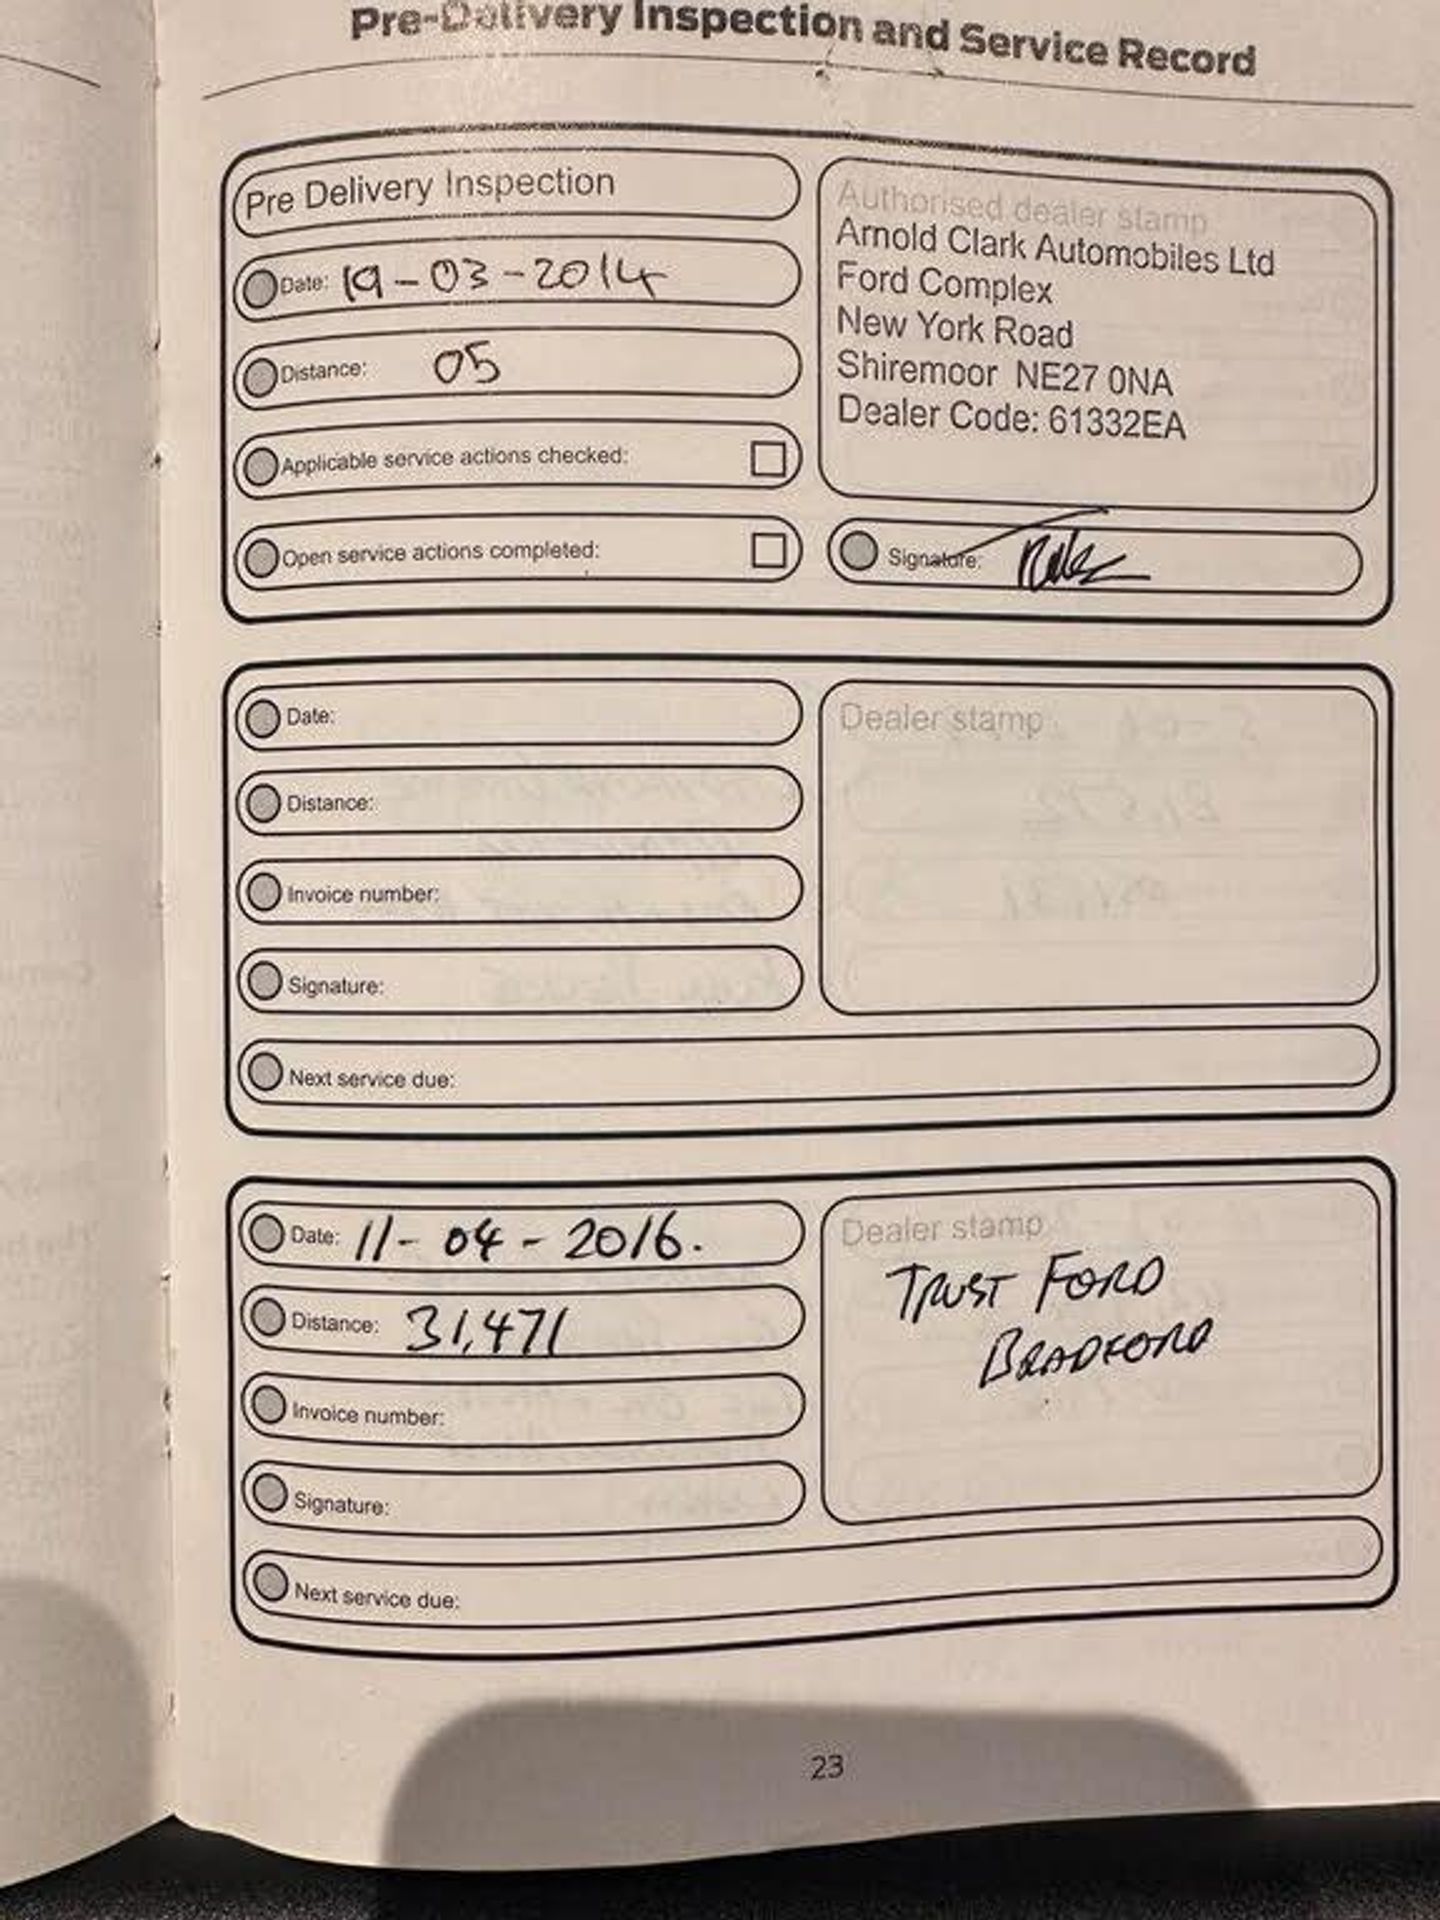 Pre-Delivery Inspection and Service Record
Pre Delivery Inspection
Date: 19-03-2014
Distance: 05
Applicable service actions checked:
Open service actions completed:
Authorised dealer stamp
Arnold Clark Automobiles Ltd
Ford Complex
New York Road
Shiremoor NE27 0NA
Dealer Code: 61332EA
Signature:
Date:
Distance:
Invoice number:
Signature:
Dealer stamp
Next service due:
Date: 11-04-2016.
Distance: 31,471
Invoice number:
Signature:
Dealer stamp
TRUST FORD
BRADFORD
Next service due:
23